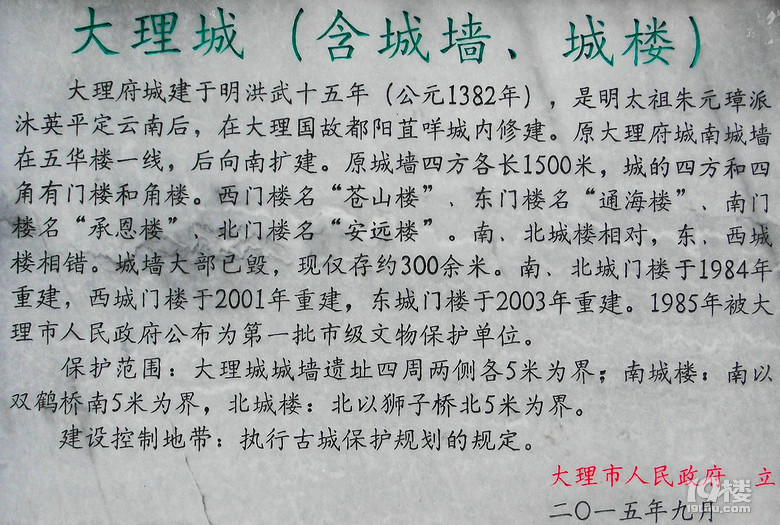 大理城（含城墙、城楼）
大理府城建于明洪武十五年（公元1382年），是明太祖朱元璋派
沐英平定云南后，在大理国故都阳苴咩城内修建。原大理府城南城墙
在五华楼一线，后向南扩建。原城墙四方各长1500米，城的四方和四
角有门楼和角楼。西门楼名“苍山楼”、东门楼名“通海楼”、南门
楼名“承恩楼”、北门楼名“安远楼”。南、北城楼相对，东、西城
楼相错。城墙大部已毁，现仅存约300余米。南、北城门楼于1984年
重建，西城门楼于2001年重建，东城门楼于2003年重建。1985年被大
理市人民政府公布为第一批市级文物保护单位。
保护范围：大理城城墙遗址四周两侧各5米为界；南城楼：南以
双鹤桥南5米为界，北城楼：北以狮子桥北5米为界。
建设控制地带：执行古城保护规划的规定。
大理市人民政府 立
二〇一五年九月
19楼
19lou.com